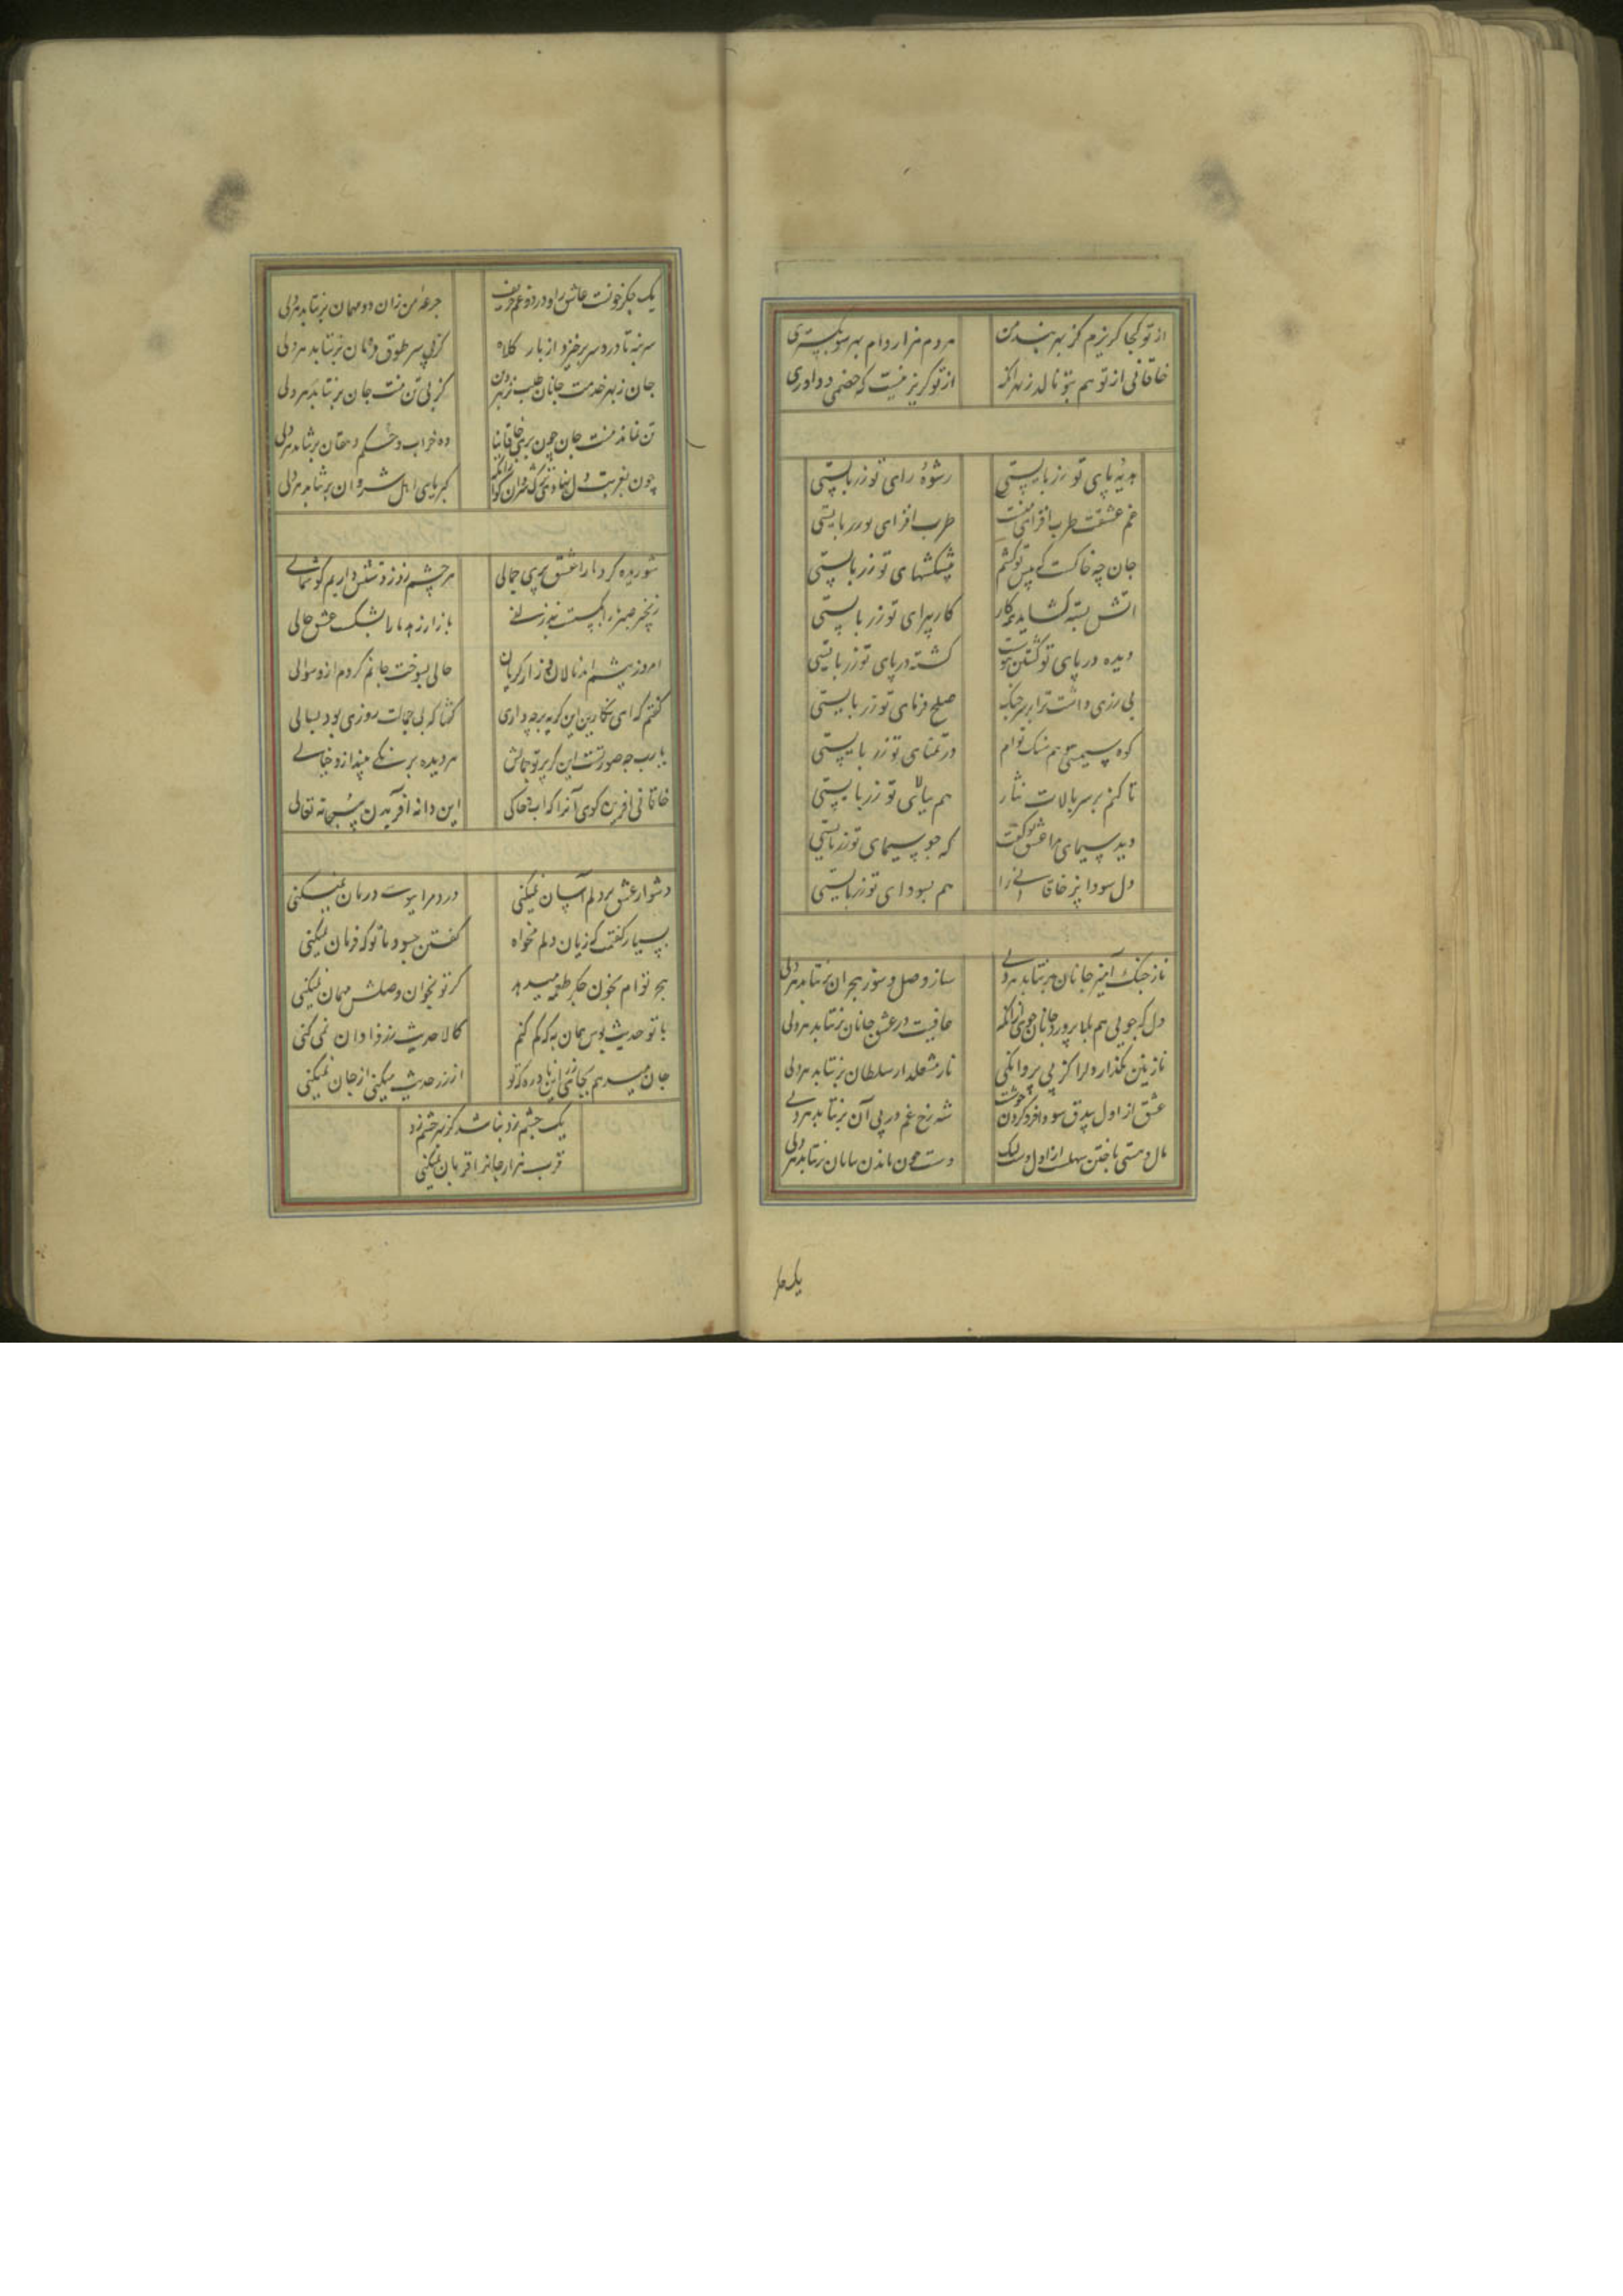 از تو کجا گریزم کز بهر بند من
هر دم هزار دام بهر سو بگستری
خاقانی از تو هم بتو نالد ز بهر آنک
از تو گریز نیست که خصمی و داوری
هدیهٔ پای تو زر بایستی
رشوهٔ رای تو زر بایستی
غم عشقت طرب افزای منست
طرب افزای تو زر بایستی
جان چه خاکست که پیش تو کشم
پیشکشهای تو زر بایستی
آتش بسته گشاید همه کار
کارپیرای تو زر بایستی
دیده در پای تو کشتن هوست
کشته در پای تو زر بایستی
بی زری داشت ترا بر سر جنگ
صلح فرمای تو زر بایستی
کوه سیمینی و هم سنگ توام
در تمنای تو زر بایستی
تا کنم بر سر بالات نثار
هم ببالای تو زر بایستی
دید سیمای مرا عشق تو گفت
که چو سیمای تو زر بایستی
دل سودا پز خاقانی را
هم بسودای تو زر بایستی
ناز جنگ آمیز جانان بر نتابد هر دلی
ساز وصل و سوز هجران بر نتابد هر دلی
دل که جویی هم بلا پرورد جانان جوی زانکه
عافیت در عشق جانان بر نتابد هر دلی
نازنین مگذار دل را کز پی پروانگی
ناز مشعلدار سلطان بر نتابد هر دلی
عشق از اول بیدق سودا فرو کردن خوشست
شه رخ غم در پی آن بر نتابد هر دلی
مال و هستی باختن سهلست از اول دست لیک
دست خون ماندن بپایان بر نتابد هر دلی
یک جگر
یک جگر خونست عاشق را و درد و غم حریف
جرعهٔ من زان دو مهمان بر نتابد هر دلی
سر بنه تا درد سر برخیزد از بار کلاه
کز پی سر طوق بر نتابد هر دلی
جان ز بهر خدمت جانان طلب نز بهر تن
کز پی تن منت جان بر نتابد هر دلی
تن نماند منت جان چون بری خاقانیا
ده خراب و حکم دهقان بر نتابد هر دلی
چون بغربت دل نهادی ترک شروان گو از آنکه
کبریای اهل شروان بر نتابد هر دلی
شوریده کرد ما را عشق پری جمالی
هر چشم زد ز دستش داریم گوشمالی
زنجیر صبر ما را بگسست بند زلفی
بازار زهد ما را بشکست عشق خالی
امروز پیشم آمد نالان و زار گریان
حالی بسوخت جانم کردم ازو سوالی
گفتم که ای نگارین این گریه بر چه داری
گفتا که بی جمالت روزی بود بسالی
یارب چه صورتست این کز پرتو جمالش
هر دیده بر رنگی پندارد و خیالی
خاقانی آفرین گوی آنرا که آب و خاکی
این داند آفریدن سبحانه تعالی
دشوار عشق بر دلم آسان نمیکنی
درد مرا ببوسه درمان نمیکنی
بسیار گفتمت که زیان دلم مخواه
گفتن چه سود با تو که فرمان نمیکنی
هجر توام بخون جگر طعمه میدهد
گر تو بخوان وصلش مهمان نمیکنی
با تو حدیث بوس همان به که کم کنم
کالا حدیث زر فراوان نمی کنی
جان میدهم بجای زر این نادره که تو
از زر حدیث میکنی از جان نمیکنی
یک چشم زد نباشد کز بهر چشم زد
قرب هزار جانرا قربان نمیکنی